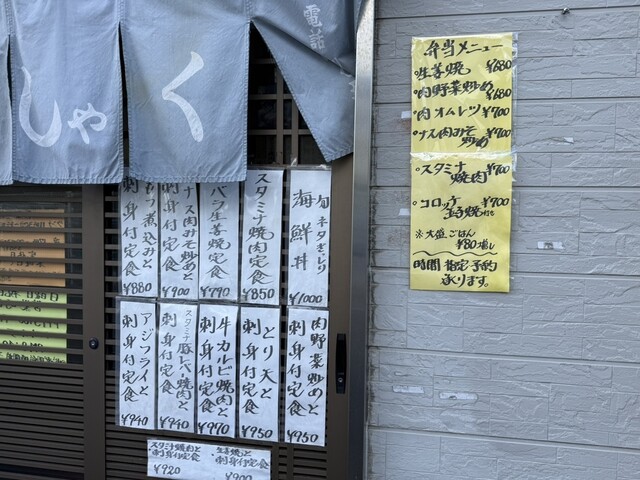 電話
しゃく
旬ネタぎっしり
海鮮丼
¥1000
スタミナ焼肉定食
¥850
バラ生姜焼定食
¥790
ナス肉みそ炒めと
刺身付定食
¥900
煮込みと
刺身付定食
¥880
肉野菜炒めと
刺身付定食
¥950
とり天と
刺身付定食
¥950
牛カルビ焼肉と
刺身付定食
¥970
スタミナ
豚レバー焼肉と
刺身付定食
¥940
アジフライと
刺身付定食
¥940
スタミナ焼肉と
刺身付定食
¥920
生姜焼と
刺身付定食
¥900
弁当メニュー
・生姜焼 ¥680
・肉野菜炒め ¥680
・肉オムレツ ¥700
・ナス肉みそ炒め ¥700
・スタミナ焼肉 ¥700
・コロッケ
玉子焼付き ¥700
※大盛ごはん
¥80増し
時間指定予約
承ります。